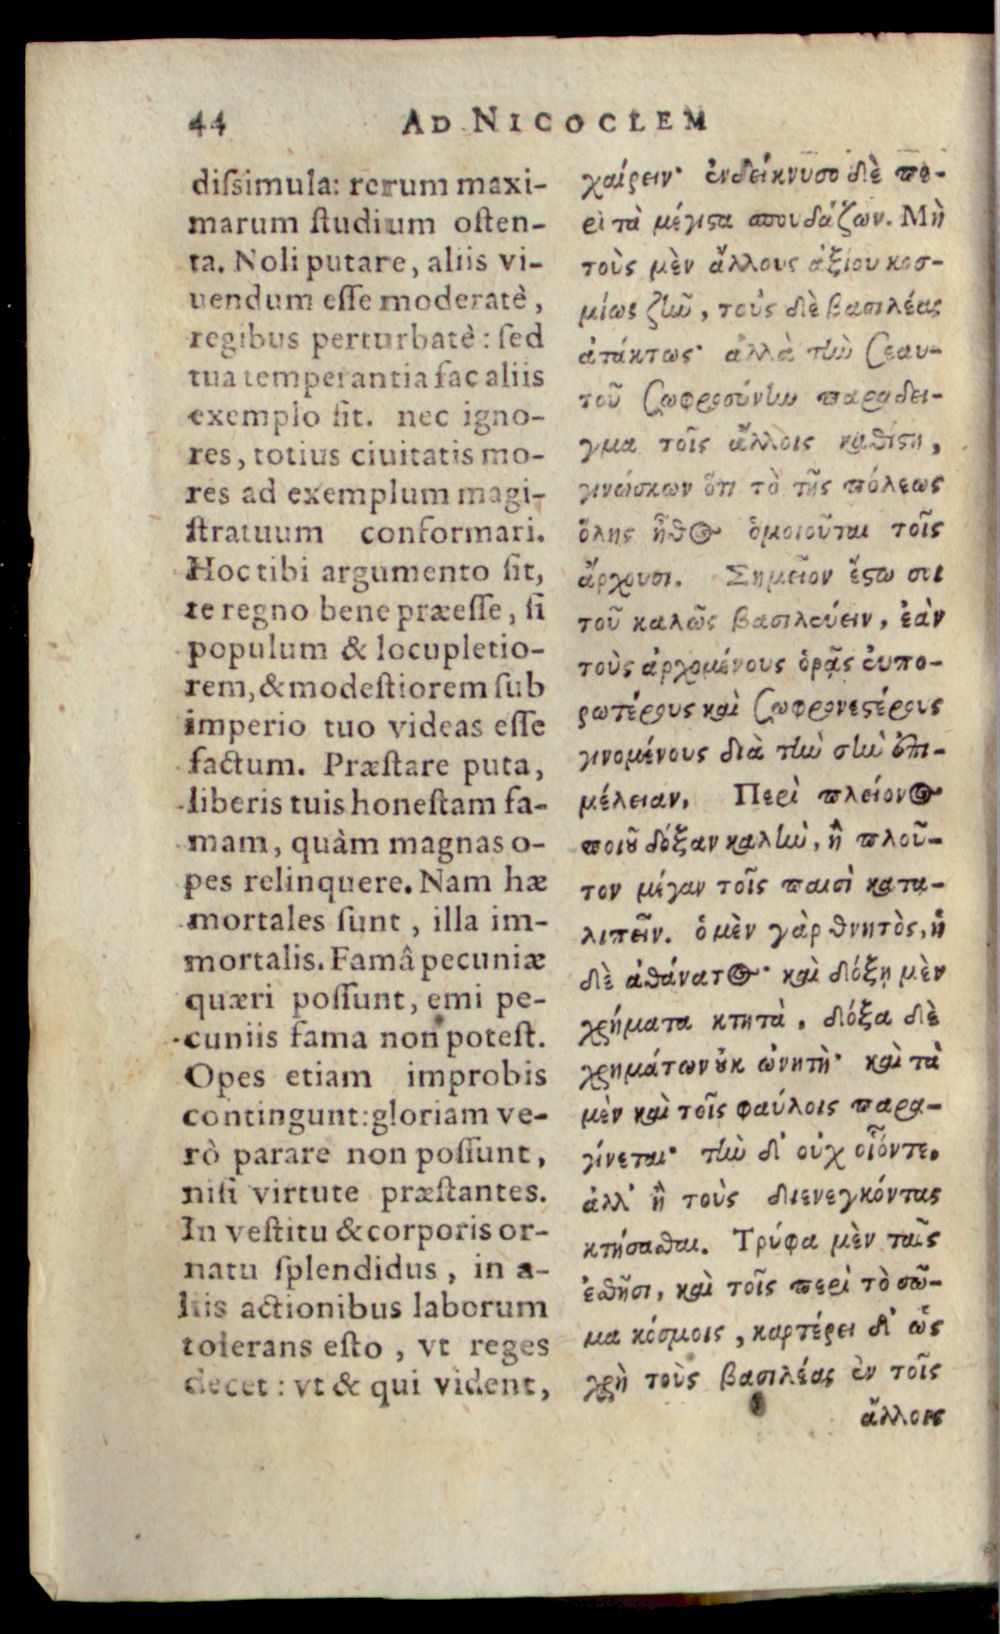 44 AD NICOCLEM
dissimula: rerum maxi-
marum studium osten-
ta. Noli putare, aliis vi-
uendum esse moderatè,
regibus perturbatè: sed
tua temperantia fac aliis
exemplo sit. nec igno-
res, totius ciuitatis mo-
res ad exemplum magi-
stratuum conformari.
Hoc tibi argumento sit,
te regno bene præesse, si
populum & locupletio-
rem, & modestiorem sub
imperio tuo videas esse
factum. Præstare puta,
liberis tuis honestam fa-
mam, quàm magnas o-
pes relinquere. Nam hæ
mortales sunt, illa im-
mortalis. Famâ pecuniæ
quæri possunt, emi pe-
cuniis fama non potest.
Opes etiam improbis
contingunt: gloriam ve-
rò parare non possunt,
nisi virtute præstantes.
In vestitu & corporis or-
natu splendidus, in a-
liis actionibus laborum
tolerans esto, vt reges
decet: vt & qui vident,
χαίρειν· ἐνδείκνυσο δὲ πε-
ρὶ τὰ μέγιστα σπουδάζων. Μὴ
τοὺς μὲν ἄλλους ἀξίου κοσ-
μίως ζῆν, τοὺς δὲ βασιλέας
ἀτάκτως· ἀλλὰ τὴν σεαυ-
τοῦ σωφροσύνην παραδει-
γμα τοῖς ἄλλοις καθίστη,
γινώσκων ὅτι τὸ τῆς πόλεως
ὅλης ἦθος ὁμοιοῦται τοῖς
ἄρχουσι. Σημεῖον ἔστω σοι
τοῦ καλῶς βασιλεύειν, ἐὰν
τοὺς ἀρχομένους ὁρᾷς εὐπο-
ρωτέρους καὶ σωφρονεστέρους
γινομένους διὰ τὴν σὴν ἐπι-
μέλειαν. Περὶ πλείονος
ποιοῦ δόξαν καλὴν, ἢ πλοῦ-
τον μέγαν τοῖς παισὶ κατα-
λιπεῖν. ὁ μὲν γὰρ θνητὸς, ἡ
δὲ ἀθάνατος· καὶ δόξῃ μὲν
χρήματα κτητὰ, δόξα δὲ
χρημάτων οὐκ ὠνητὴ· καὶ τὰ
μὲν καὶ τοῖς φαύλοις παρα-
γίνεται· τὴν δ' οὐχ οἷόντε,
ἀλλ' ἢ τοὺς διενεγκόντας
κτήσασθαι. Τρύφα μὲν ταῖς
ἐσθῆσι, καὶ τοῖς περὶ τὸ σῶ-
μα κόσμοις, καρτέρει δ' ὡς
χρὴ τοὺς βασιλέας ἐν τοῖς
ἄλλοις